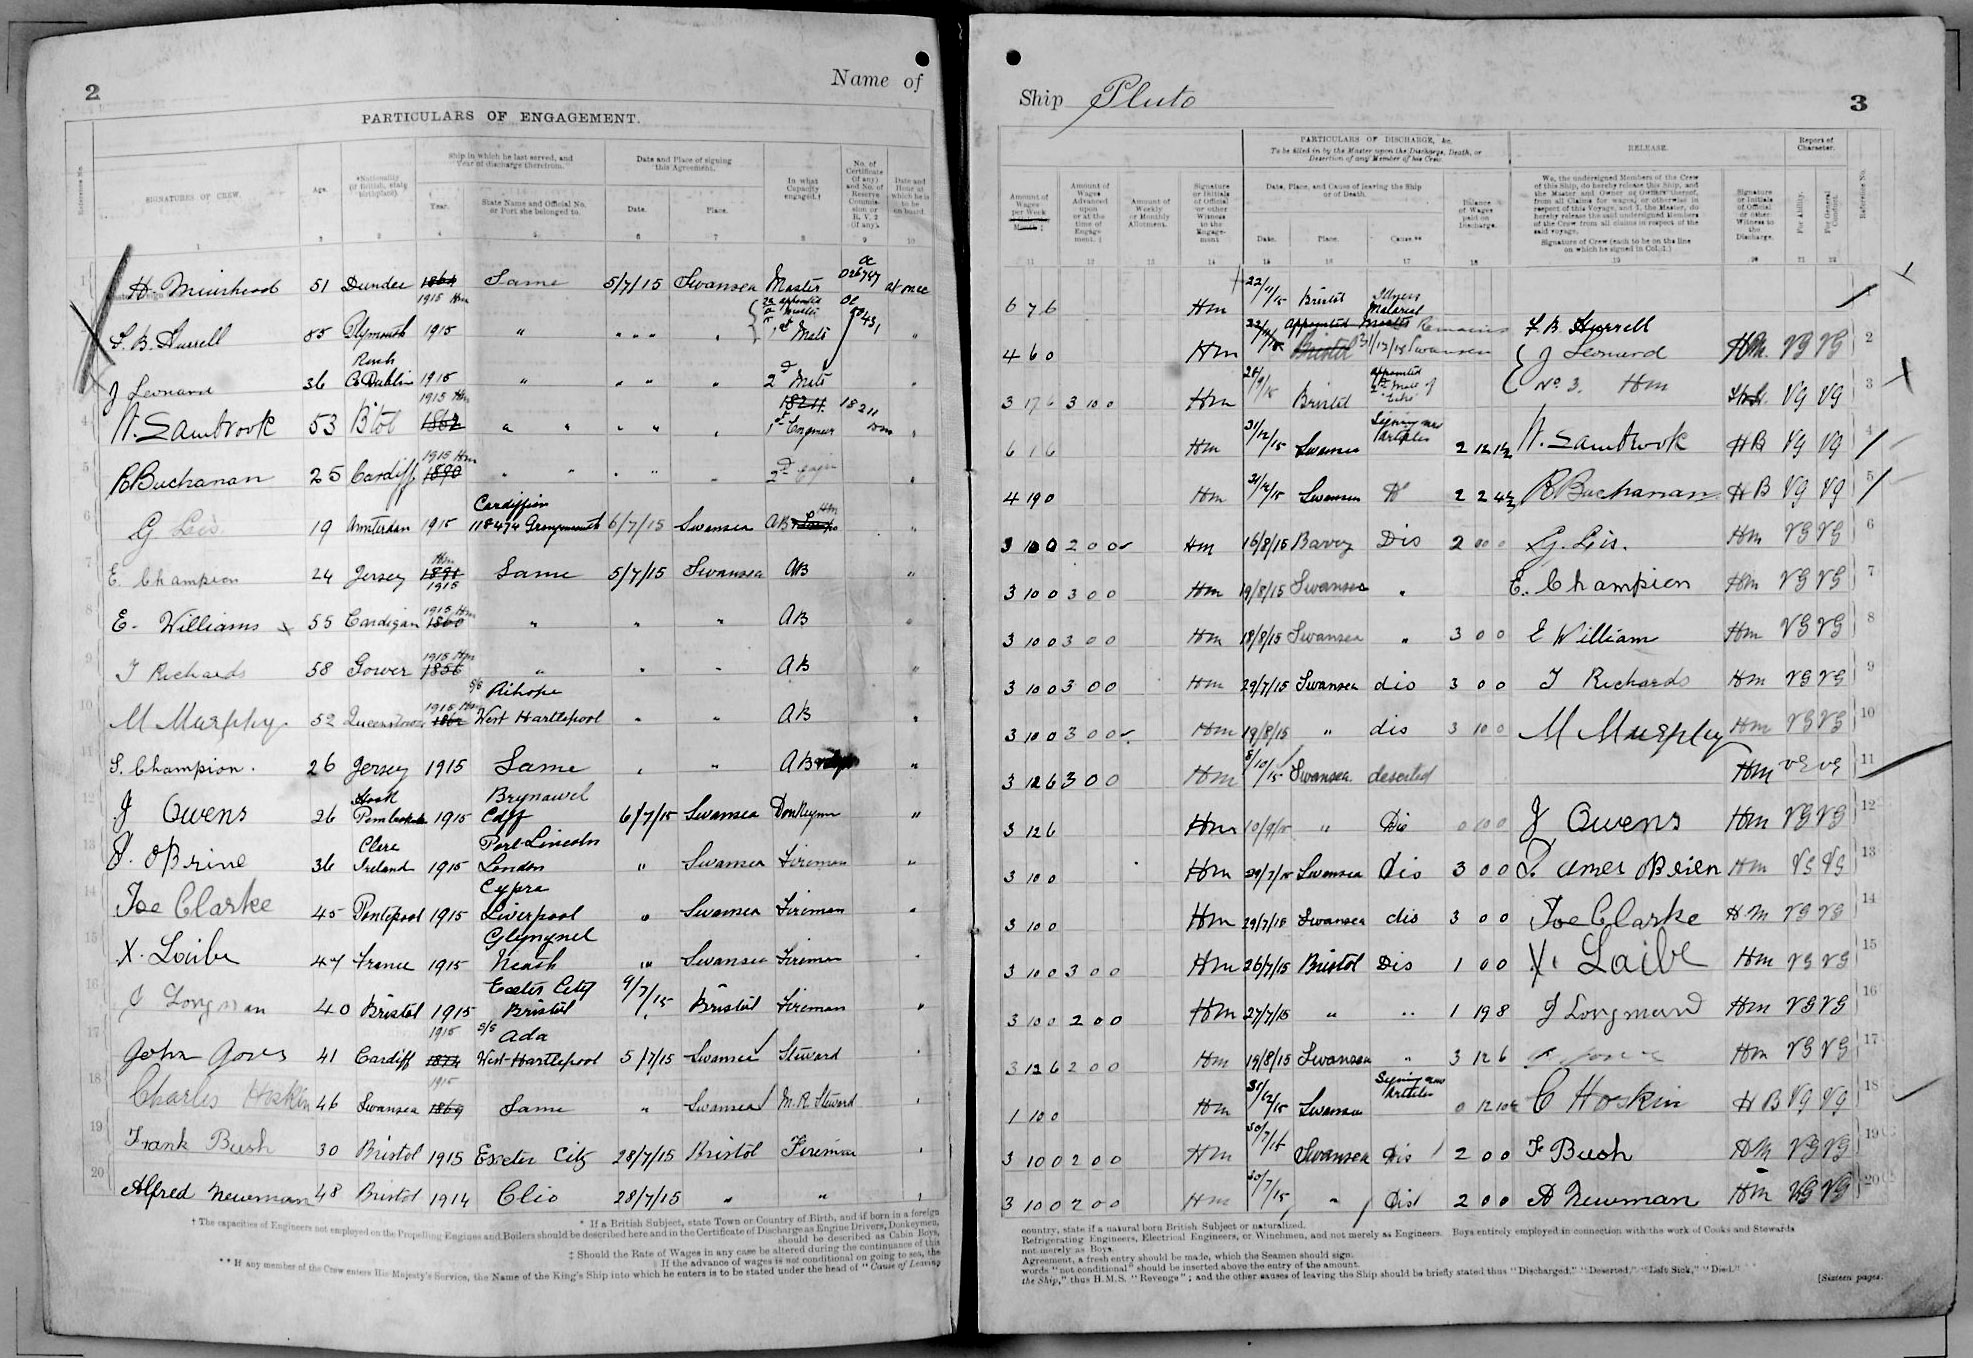 2
Name of
PARTICULARS OF ENGAGEMENT.
Reference No.
SIGNATURES OF CREW.
Age.
*Nationality (if British, state birthplace).
Ship in which he last served, and Year of discharge therefrom.
Year.
State Name and Official No. or Port she belonged to.
Date and Place of signing this Agreement.
Date.
Place.
In what Capacity engaged.†
No. of Certificate (if any) and No. of Reserve Commission or R.V.2 (if any).
Date and Hour at which he is to be on board.
1 2 3 4 5 6 7 8 9 10
H. Muirhead 51 Dundee 1864 1915 Hm Same 5/7/15 Swansea Master 026787 at once
F. B. Hurrell 35 Plymouth 1915 " " " " 1st Mate "
3 J Leonard 36 Rush Co Dublin 1915 " " " " 2d Mate "
4 W. Sambrook 53 B'tol 1862 1915 Hm " " " " 1st Engineer 18211 "
5 R Buchanan 25 Cardiff 1890 1915 Hm " " " " 2d Engin "
6 G Leis 19 Amsterdam 1915 Cardiffian 118474 Grangemouth 6/7/15 Swansea AB "
7 E. Champion 24 Jersey 1891 1915 Hm Same 5/7/15 Swansea AB "
8 E. Williams x 55 Cardigan 1860 1915 Hm " " " AB "
9 T Richards 58 Gower 1856 1915 Hm " " " AB "
10 M Murphy 52 Queenstown 1862 1915 Hm S/S Rihope West Hartlepool " " AB "
11 S. Champion. 26 Jersey 1915 Same " " AB "
12 J Owens 26 Hook Pembroke 1915 Brynawel Cdff 6/7/15 Swansea Donkeyman "
13 J. OBrine 36 Clare Ireland 1915 Port Lincoln London " Swansea Fireman "
14 Joe Clarke 45 Pontypool 1915 Cypra Liverpool " Swansea Fireman "
15 X. Laibe 47 France 1915 Glynynel Neath " Swansea Fireman "
16 J Longman 40 Bristol 1915 Exeter City Bristol 9/7/15 Bristol Fireman "
17 John 41 Cardiff 1874 1915 S/S Ada West Hartlepool 5/7/15 Swansea Steward "
18 Charles Hoskin 46 Swansea 1869 1915 Same " Swansea M. R. Steward "
19 Frank Bush 30 Bristol 1915 Exeter City 28/7/15 Bristol Fireman "
20 Alfred Newman 48 Bristol 1914 Clio 28/7/15 " " "
* If a British Subject, state Town or Country of Birth, and if born in a foreign
† The capacities of Engineers not employed on the Propelling Engines and Boilers should be described here and in the Certificate of Discharge as Engine Drivers, Donkeymen,
should be described as Cabin Boys,
‡ Should the Rate of Wages in any case be altered during the continuance of this
If the advance of wages is not conditional on going to sea, the
** If any member of the Crew enters His Majesty's Service, the Name of the King's Ship into which he enters is to be stated under the head of "Cause of Leaving
Ship Pluto
3
Amount of Wages per Week
Amount of Wages Advanced upon or at the time of Engagement.
Amount of Weekly or Monthly Allotment.
Signature or Initials of Official or other Witness to the Engagement
PARTICULARS OF DISCHARGE, &c.
To be filled in by the Master upon the Discharge, Death, or Desertion of any Member of his Crew.
Date, Place, and Cause of leaving the Ship or of Death.
Date.
Place.
Cause**
Balance of Wages paid on Discharge.
RELEASE.
We, the undersigned Members of the Crew of this Ship, do hereby release this Ship, and the Master and Owner or Owners thereof, from all Claims for wages or otherwise in respect of this Voyage, and I, the Master, do hereby release the said undersigned Members of the Crew from all claims in respect of the said voyage.
Signature of Crew (each to be on the line on which he signed in Col. 1.)
Signature or Initials of Official or other Witness to the Discharge.
Report of Character.
For Ability.
For General Conduct.
Reference No.
11 12 13 14 15 16 17 18 19 20 21 22
6 7 6 Hm 22/11/15 Bristol Illness Malarial 1
4 6 0 Hm 22/11/15 Bristol appointed Master Remains 31/12/15 Swansea F. B. Hurrell Hm VG VG 2
3 17 6 3 10 0 Hm 28/9/15 Bristol appointed 2nd Mate of J Leonard No. 3. Hm VG VG 3
6 1 6 Hm 31/12/15 Swansea Signing new Articles 2 12 1½ W. Sambrook HB VG VG 4
4 19 0 Hm 31/12/15 Swansea Do 2 2 4½ R Buchanan HB VG VG 5
3 10 0 2 0 0 Hm 16/8/15 Barry Dis 2 0 0 G. Leis. Hm VG VG 6
3 10 0 3 0 0 Hm 19/8/15 Swansea " E. Champion Hm VG VG 7
3 10 0 3 0 0 Hm 18/8/15 Swansea " 3 0 0 E William Hm VG VG 8
3 10 0 3 0 0 Hm 29/7/15 Swansea dis 3 0 0 T Richards Hm VG VG 9
3 10 0 3 0 0 Hm 19/8/15 " dis 3 10 0 M Murphy Hm VG VG 10
3 12 6 3 0 0 Hm 8/10/15 Swansea deserted Hm VG VG 11
3 12 6 Hm 10/9/15 " Dis 0 10 0 J Owens Hm VG VG 12
3 10 0 Hm 29/7/15 Swansea Dis 3 0 0 J. OBrien Hm VG VG 13
3 10 0 Hm 29/7/15 Swansea dis 3 0 0 Joe Clarke Hm VG VG 14
3 10 0 3 0 0 Hm 26/7/15 Bristol Dis 1 0 0 X. Laibe Hm VG VG 15
3 10 0 2 0 0 Hm 27/7/15 " " 1 19 8 J Longman Hm VG VG 16
3 12 6 2 0 0 Hm 19/8/15 Swansea " 3 12 6 Hm VG VG 17
1 10 0 Hm 31/12/15 Swansea Signing new Articles 0 12 10½ C Hoskin HB VG VG 18
3 10 0 2 0 0 Hm 30/7/15 Swansea Dis 2 0 0 F Bush Hm VG VG 19
3 10 0 2 0 0 Hm 30/7/15 " Dis 2 0 0 A Newman Hm VG VG 20
country, state if a natural born British Subject or naturalized.
Refrigerating Engineers, Electrical Engineers, or Winchmen, and not merely as Engineers. Boys entirely employed in connection with the work of Cooks and Stewards
not merely as Boys.
Agreement, a fresh entry should be made, which the Seamen should sign.
words "not conditional" should be inserted above the entry of the amount.
the Ship," thus H.M.S. "Revenge"; and the other causes of leaving the Ship should be briefly stated thus "Discharged," "Deserted," "Left Sick," "Died."
[Sixteen pages.